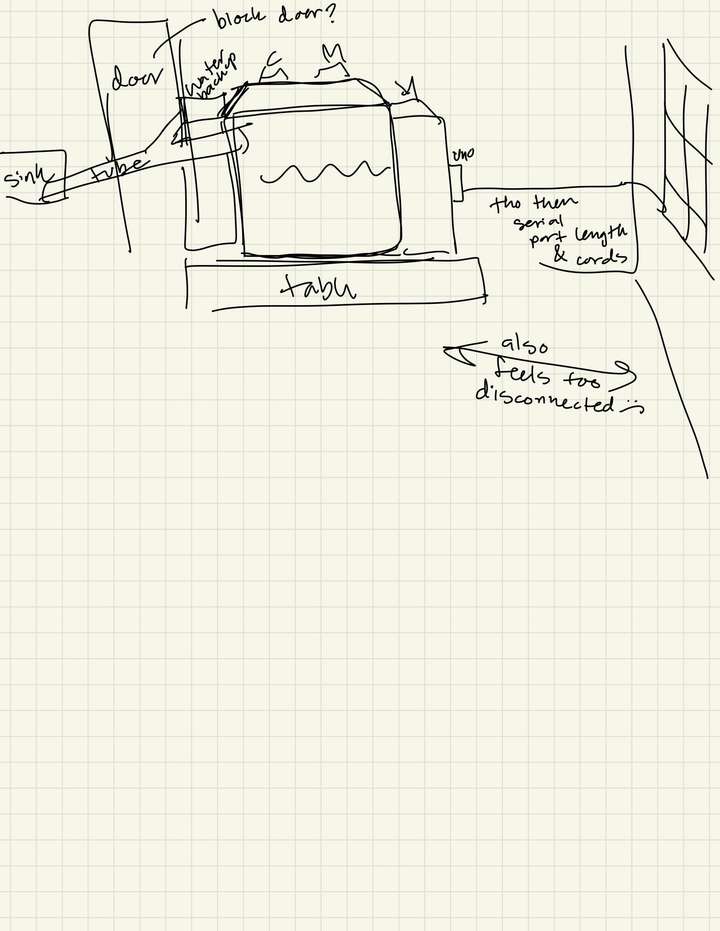 block door?
door
water
backup
C
M
sink
tube
uno
tho then
serial
port length
& cords
table
also
feels too
disconnected :(